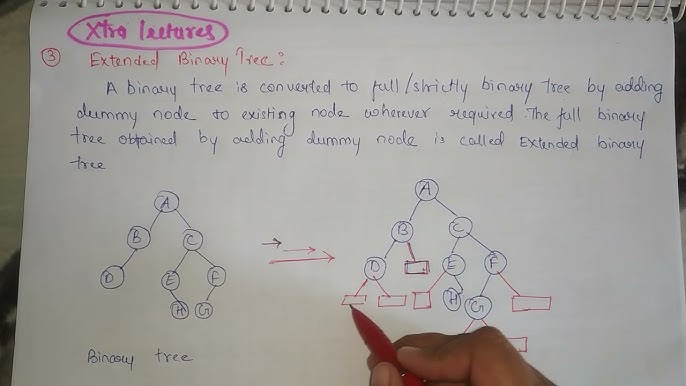 Xtra lectures
③ Extended Binary Tree:
A binary tree is converted to full/strictly binary tree by adding
dummy node to existing node wherever required. The full binary
tree obtained by adding dummy node is called Extended binary
tree
A
B C
D E F
H G
A
B C
D E F
H G
Binary tree